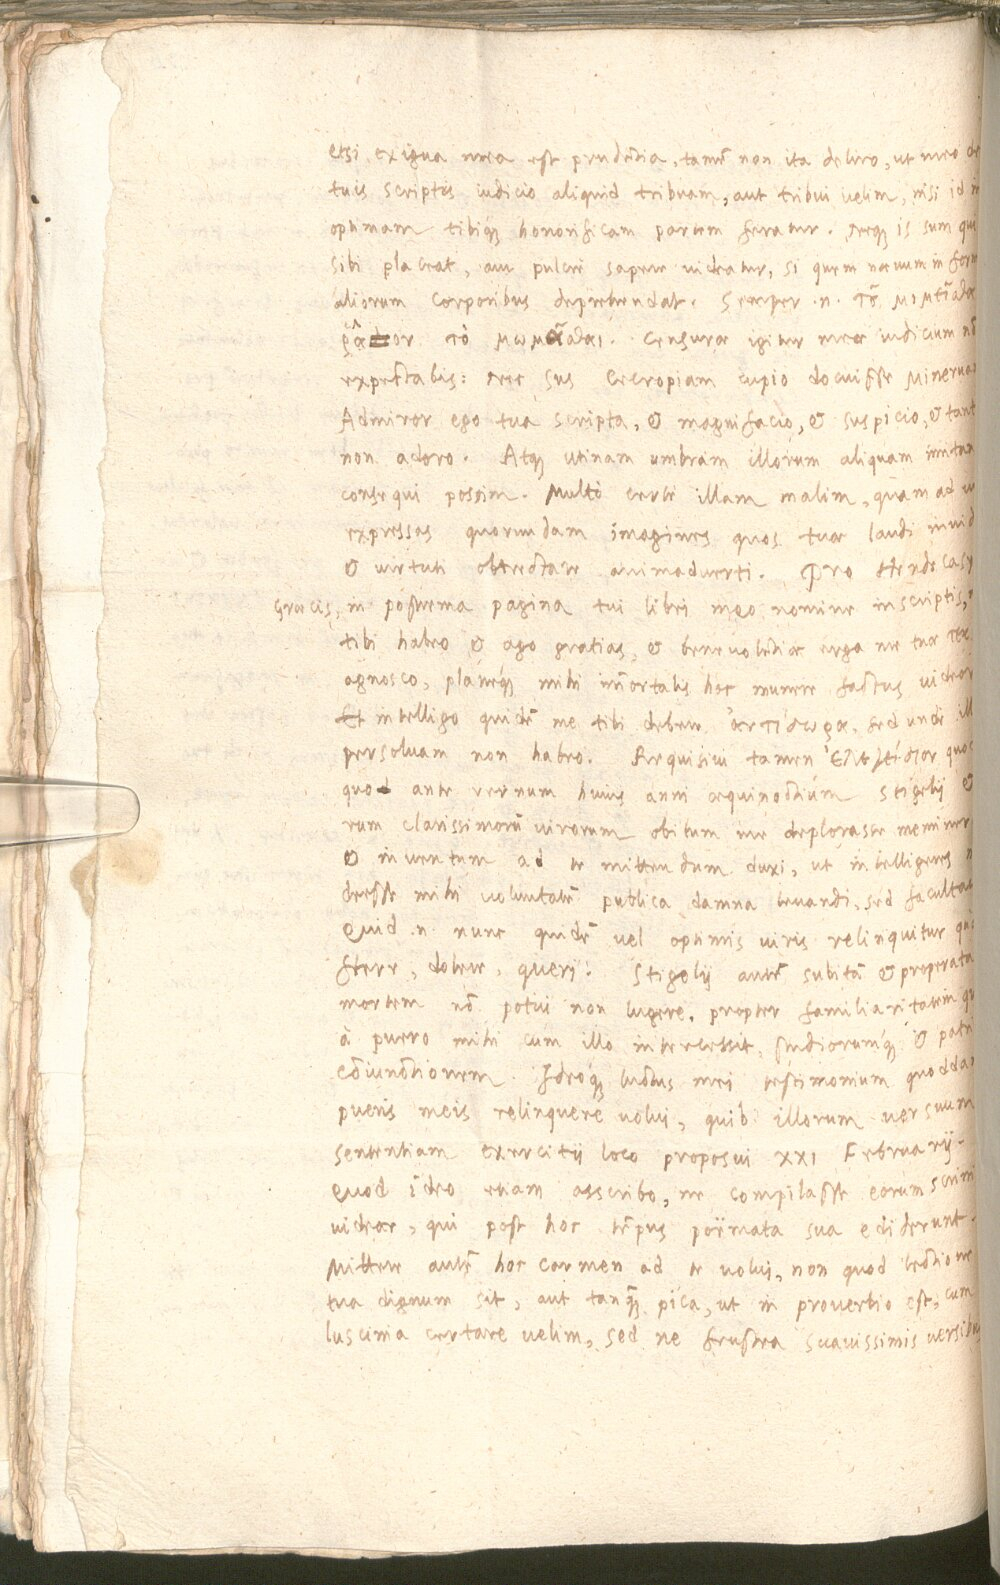 etsi exigua mea est prudẽtia, tamẽ non ita deliro, ut meo de
tuis scriptis iudicio aliquid tribuam, aut tribui uelim, nisi id in
optimam tibiq́ honorificam partem feratur. Neq́ is sum qui
sibi placeat, aut pulcre sapere uideatur, si quem naeuum in
aliorum corporibus deprehendat. Semper .n. τõ
τὸ μωμᾶσθαι. Censurae igitur meae iudicium nõ
expectabis: nec sus Cecropiam cupio docuisse Mineruam
Admiror ego tua scripta, & magnifacio, & suspicio, & tant
non adoro. Atq́ utinam umbram illorum aliquam imitan
consequi possim. Multò certè illam malim, quam ad
expressas quorundam imagines quos tuae laudi inuid
& uirtuti obtrectare animaduerti. Pro Hendecasy
Graecis, in postrema pagina tui libri meo nomine inscriptis,
tibi habeo & ago gratias, & beneuolẽtiae erga me tuae
agnosco, planeq́ mihi im̃ortalis hoc munere factus uideor
Et intelligo quidẽ me tibi debere ἀντίδωρα, sed unde ill
persoluam non habeo. Requisiui tamen quod
quod ante vernum huius anni aequinoctium Stigelij &
rum clarissimorũ uirorum obitum me deplorasse memine
& inuentum ad te mittendum duxi, ut intelligeres
deesse mihi voluntatẽ publica damna leuandi, sed facultat
Quid .n. nunc quidẽ uel optimis uiris relinquitur
flere, dolere, queri? Stigelij autẽ subitã & properata
mortem nõ potui non lugere, propter familiaritatem
à puero mihi cum illo intercessit, studiorumq́ & patri
cõiunctionem. Ideoq́ luctus mei testimonium quoddam
pueris meis relinquere uolui, quib. illorum versuum
sententiam exercitij loco proposui XXI Februarij.
Quod ideo etiam asscribo, ne compilasse eorum scrini
uidear, qui post hoc tẽpus poëmata sua ediderunt.
Mittere autẽ hoc carmen ad te uolui, non quod lectione
tua dignum sit, aut tanq̃ pica, ut in prouerbio est, cum
luscinia certare uelim, sed ne frustra suauissimis uersibus